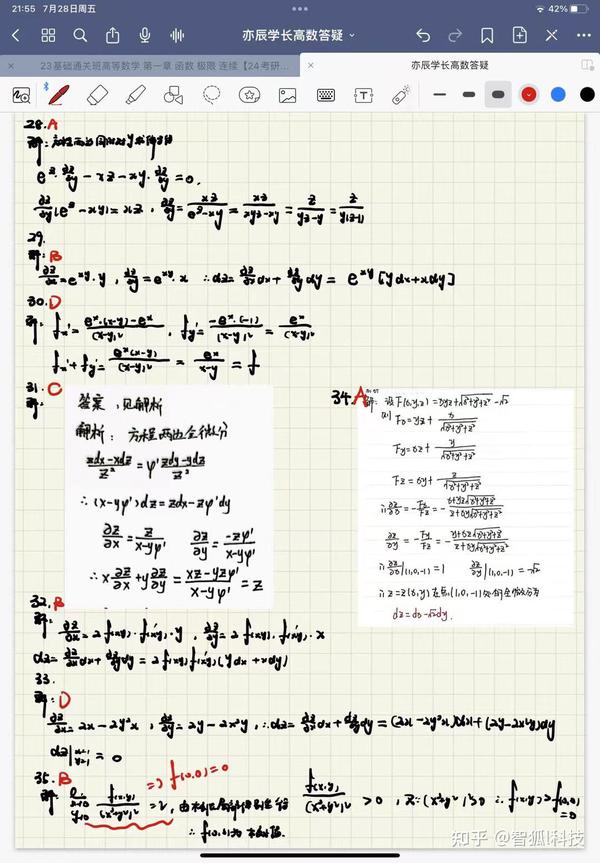 21:55 7月28日周五
42%
亦辰学长高数答疑
23基础通关班高等数学 第一章 函数 极限 连续【24考研...
亦辰学长高数答疑
28. A
解: 方程两边同时对y求偏导得
e^z·∂z/∂y - xz - xy·∂z/∂y = 0.
∂z/∂y(e^z - xy) = xz, ∂z/∂y = xz/(e^z-xy) = xz/(xyz-xy) = z/(yz-y) = z/(y(z-1))
29.
解: B
∂z/∂x = e^xy·y, ∂z/∂y = e^xy·x ∴dz = ∂z/∂x dx + ∂z/∂y dy = e^xy [ydx+xdy]
30. D
解: fx' = (e^x·(x-y)-e^x)/(x-y)², fy' = -e^x·(-1)/(x-y)² = e^x/(x-y)²
fx'+fy' = e^x(x-y)/(x-y)² = e^x/(x-y) = f
31. C
解:
答案: 见解析
解析: 方程两边全微分
(zdx-xdz)/z² = φ'(zdy-ydz)/z²
∴(x-yφ')dz = zdx-zφ'dy
∂z/∂x = z/(x-yφ') ∂z/∂y = -zφ'/(x-yφ')
∴x∂z/∂x+y∂z/∂y = (xz-yzφ')/(x-yφ') = z
34. A
解: 设F(x,y,z) = xyz+√(x²+y²+z²)-√2
则 Fx = yz + x/√(x²+y²+z²)
Fy = xz + y/√(x²+y²+z²)
Fz = xy + z/√(x²+y²+z²)
∴∂z/∂x = -Fx/Fz = -(x+yz√(x²+y²+z²))/(z+xy√(x²+y²+z²))
∂z/∂y = -Fy/Fz = -(y+xz√(x²+y²+z²))/(z+xy√(x²+y²+z²))
∴∂z/∂x|(1,0,-1) = 1 ∂z/∂y|(1,0,-1) = -√2
∴z=z(x,y)在点(1,0,-1)处的全微分为
dz = dx-√2dy.
32. B
解: ∂z/∂x = 2f(xy)·f'(xy)·y, ∂z/∂y = 2f(xy)·f'(xy)·x
dz = ∂z/∂x dx + ∂z/∂y dy = 2f(xy)f'(xy)(ydx+xdy)
33.
解: D
∂z/∂x = 2x-2y²x, ∂z/∂y = 2y-2x²y, ∴dz = ∂z/∂x dx + ∂z/∂y dy = (2x-2y²x)dx+(2y-2x²y)dy
dz|x=1 y=1 = 0
35. B
⇒ f(0,0)=0
解: lim x→0 y→0 f(x,y)/(x²+y²)² = 2, 由极限局部保号性得 f(x,y)/(x²+y²)² > 0, 又∵(x²+y²)²>0 ∴f(x,y)>f(0,0)=0
∴f(0,0)为极小值.
知乎 @智狐l科技